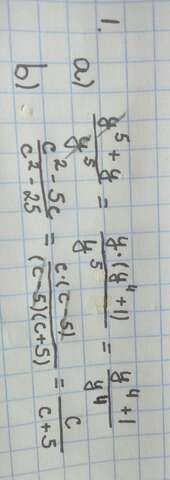 1.
a) \frac{y^5 + y}{y^5} = \frac{y \cdot (y^4 + 1)}{y^5} = \frac{y^4 + 1}{y^4}
b) \frac{c^2 - 5c}{c^2 - 25} = \frac{c \cdot (c - 5)}{(c - 5)(c + 5)} = \frac{c}{c + 5}